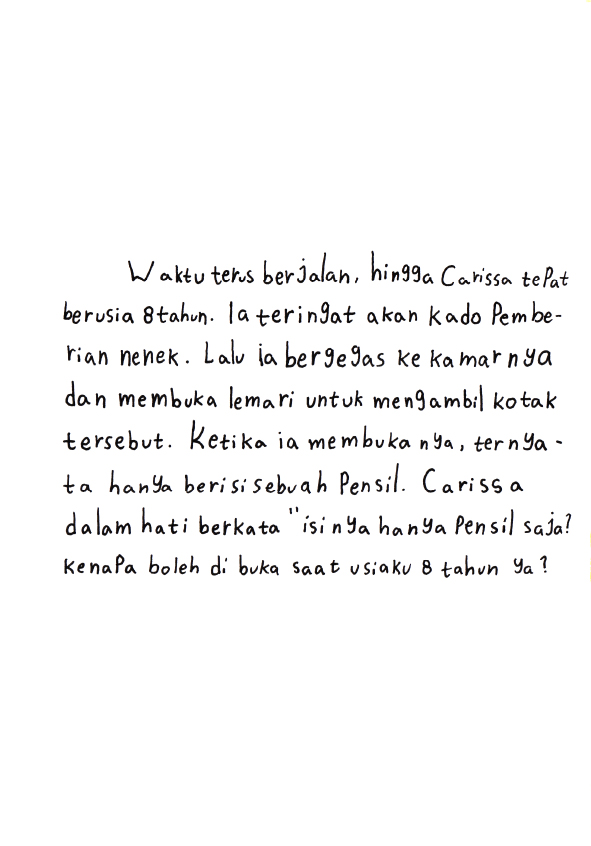 Waktu terus berjalan, hingga Carissa tepat
berusia 8 tahun. Ia teringat akan kado Pembe-
rian nenek. Lalu ia bergegas ke kamarnya
dan membuka lemari untuk mengambil kotak
tersebut. Ketika ia membukanya, ternya-
ta hanya berisi sebuah Pensil. Carissa
dalam hati berkata "isinya hanya Pensil saja?
Kenapa boleh di buka saat usiaku 8 tahun ya?